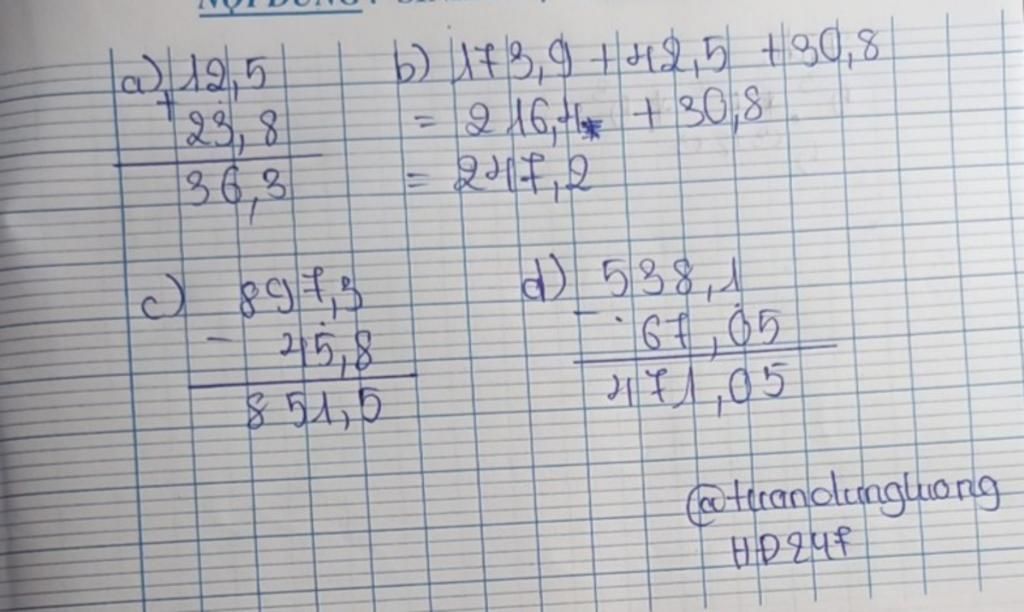 NỘI DUNG :
a) 12,5
+
23,8
36,3
b) 173,9 + 42,5 + 30,8
= 216,4 + 30,8
= 247,2
c) 897,3
- 45,8
851,5
d) 538,1
- 67,05
471,05
@tuandungluong
HD247